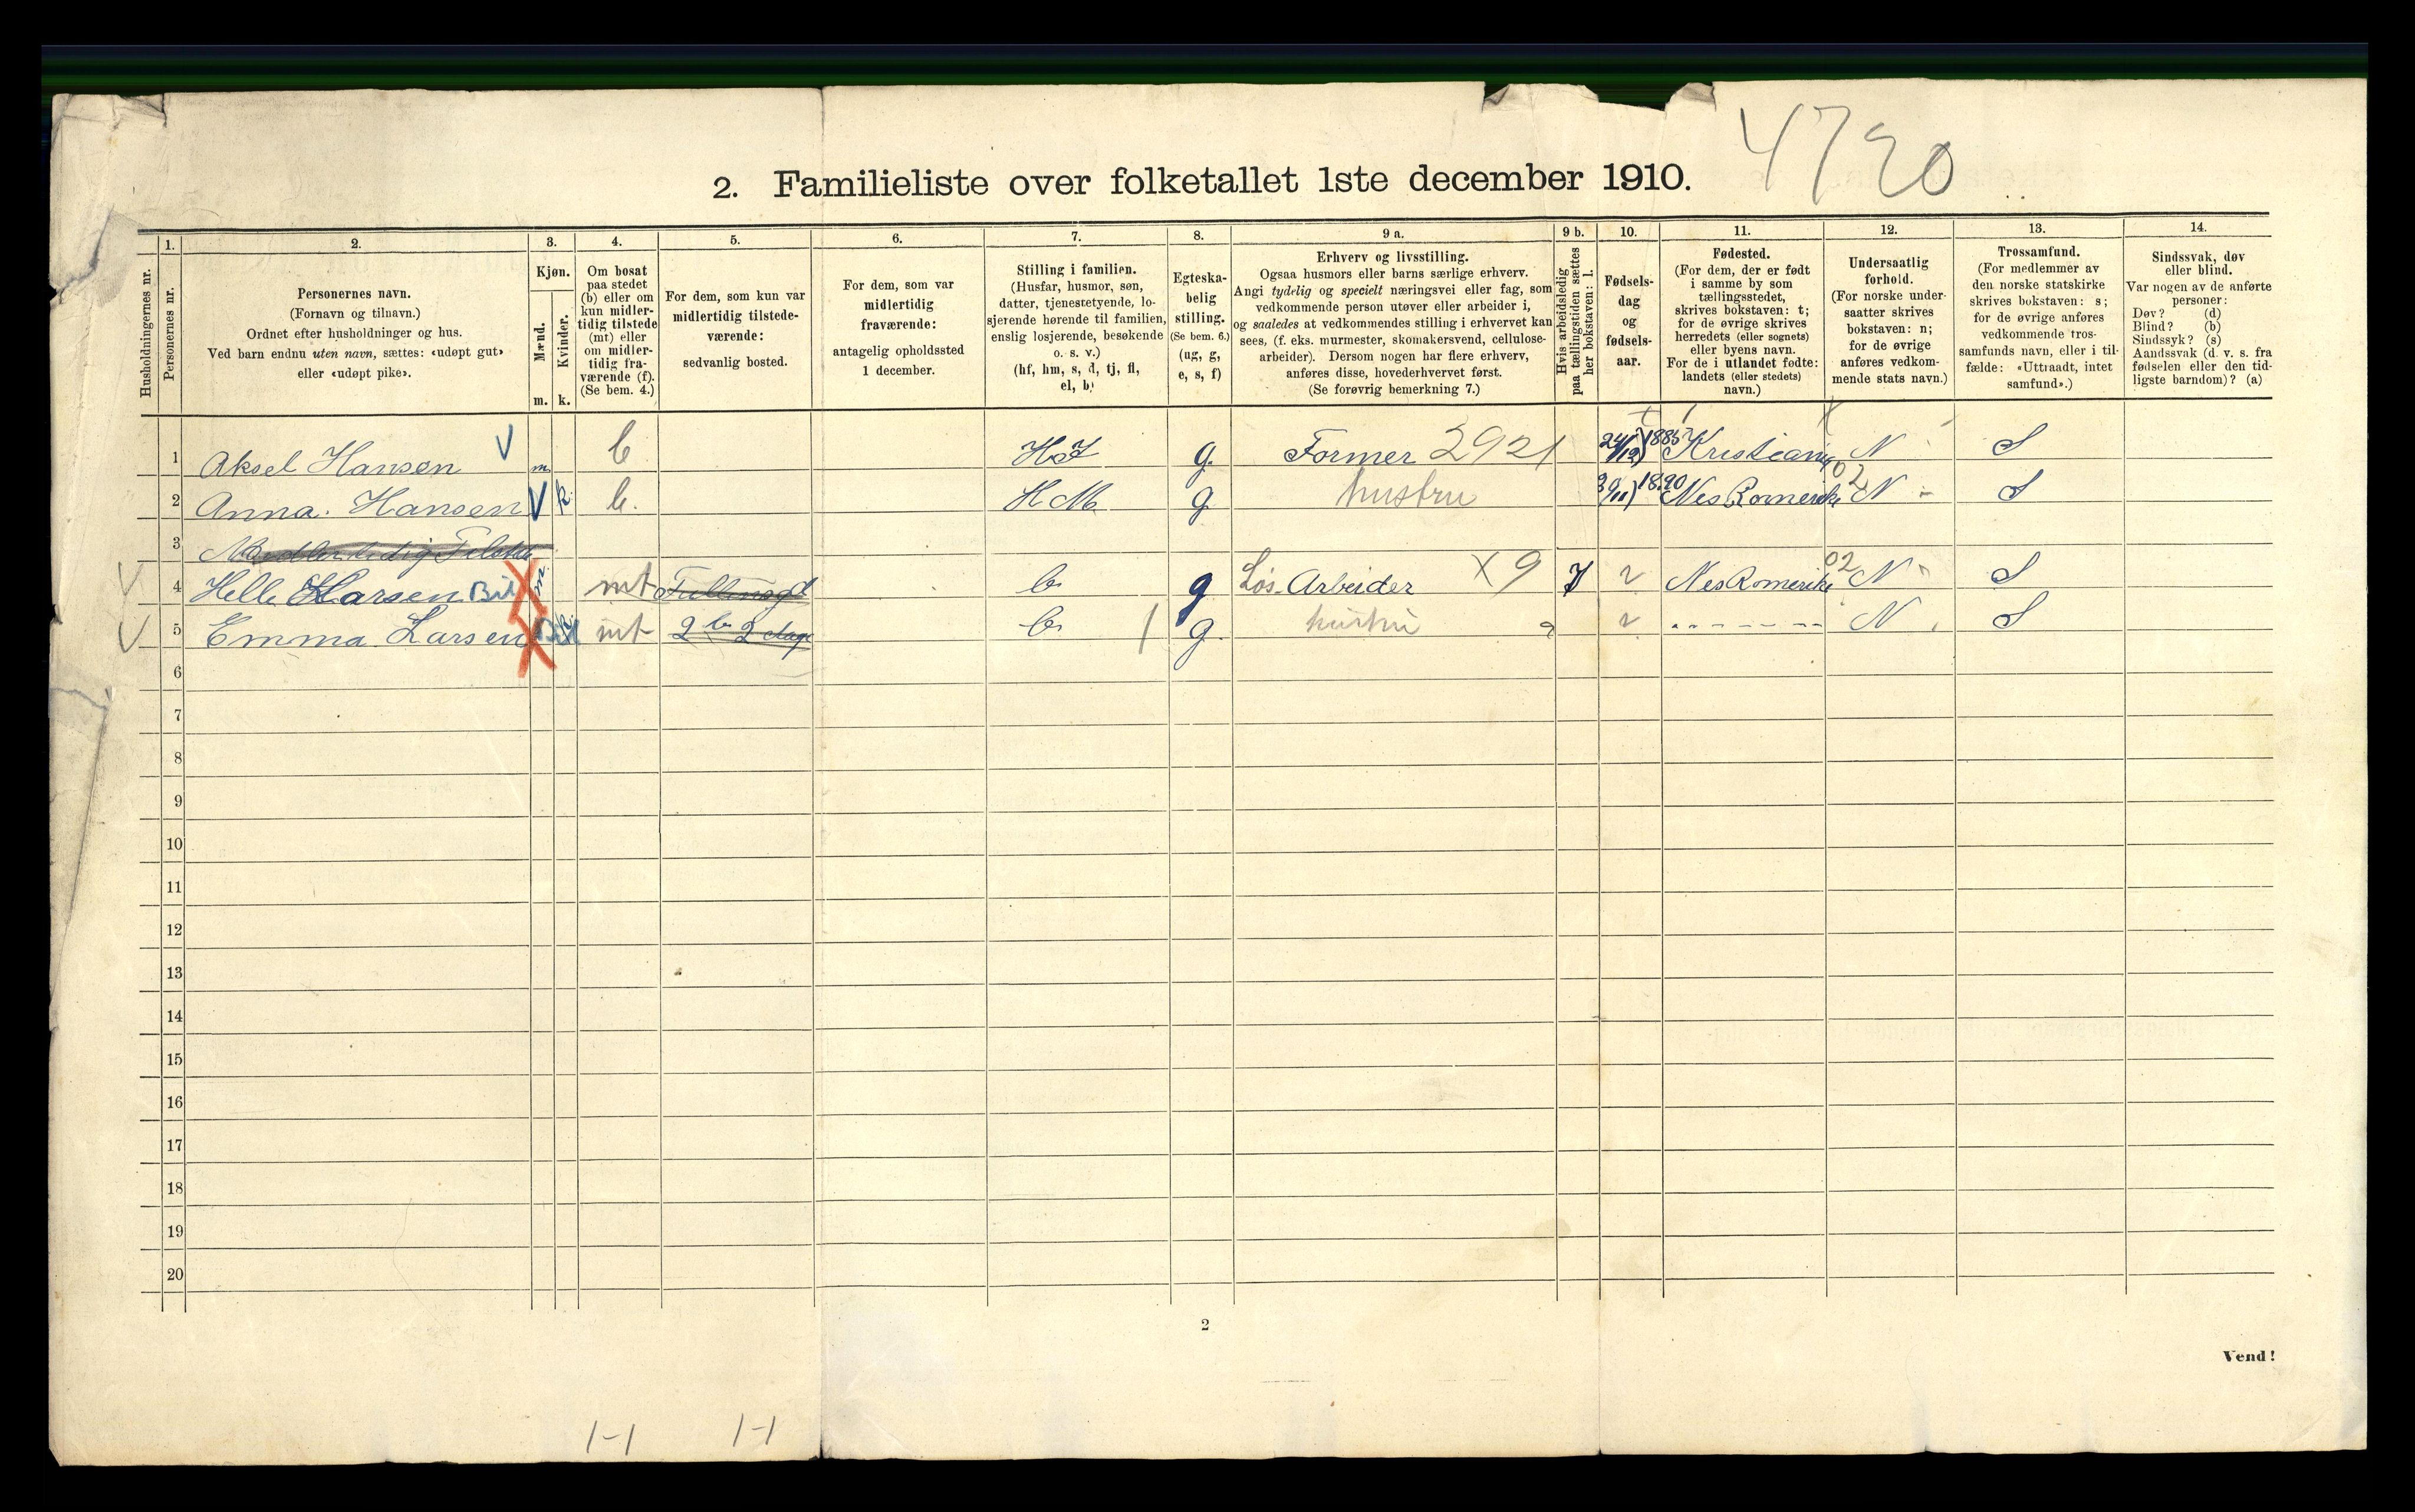 4790
2. Familieliste over folketallet 1ste december 1910.
Husholdningernes nr.
1. Personernes nr.
2. Personernes navn. (Fornavn og tilnavn.) Ordnet efter husholdninger og hus. Ved barn endnu uten navn, sættes: «udøpt gut» eller «udøpt pike».
3. Kjøn. Mænd. m. Kvinder. k.
4. Om bosat paa stedet (b) eller om kun midlertidig tilstede (mt) eller om midlertidig fraværende (f). (Se bem. 4.)
5. For dem, som kun var midlertidig tilstedeværende: sedvanlig bosted.
6. For dem, som var midlertidig fraværende: antagelig opholdssted 1 december.
7. Stilling i familien. (Husfar, husmor, søn, datter, tjenestetyende, losjerende hørende til familien, enslig losjerende, besøkende o. s. v.) (hf, hm, s, d, tj, fl, el, b)
8. Egteskabelig stilling. (Se bem. 6.) (ug, g, e, s, f)
9 a. Erhverv og livsstilling. Ogsaa husmors eller barns særlige erhverv. Angi tydelig og specielt næringsvei eller fag, som vedkommende person utøver eller arbeider i, og saaledes at vedkommendes stilling i erhvervet kan sees, (f. eks. murmester, skomakersvend, cellulosearbeider). Dersom nogen har flere erhverv, anføres disse, hovederhvervet først. (Se forøvrig bemerkning 7.)
9 b. Hvis arbeidsledig paa tællingstiden sættes her bokstaven: l.
10. Fødselsdag og fødselsaar.
11. Fødested. (For dem, der er født i samme by som tællingsstedet, skrives bokstaven: t; for de øvrige skrives herredets (eller sognets) eller byens navn. For de i utlandet fødte: landets (eller stedets) navn.)
12. Undersaatlig forhold. (For norske undersaatter skrives bokstaven: n; for de øvrige anføres vedkommende stats navn.)
13. Trossamfund. (For medlemmer av den norske statskirke skrives bokstaven: s; for de øvrige anføres vedkommende trossamfunds navn, eller i tilfælde: «Uttraadt, intet samfund».)
14. Sindssvak, døv eller blind. Var nogen av de anførte personer: Døv? (d) Blind? (b) Sindssyk? (s) Aandssvak (d. v. s. fra fødselen eller den tidligste barndom)? (a)
1 Aksel Hansen m b HF g. Former 2921 24/12 1885 Kristiania N S
2 Anna. Hansen k b. HM g hustru 1890 Nes Romerike 02 N S
3
4 Larsen m mt b g Løs Arbeider X9 Nes Romerike 02 N S
5 Emma Larsen k mt b g. hustru N S
6
7
8
9
10
11
12
13
14
15
16
17
18
19
20
2
Vend!
1-1 1-1